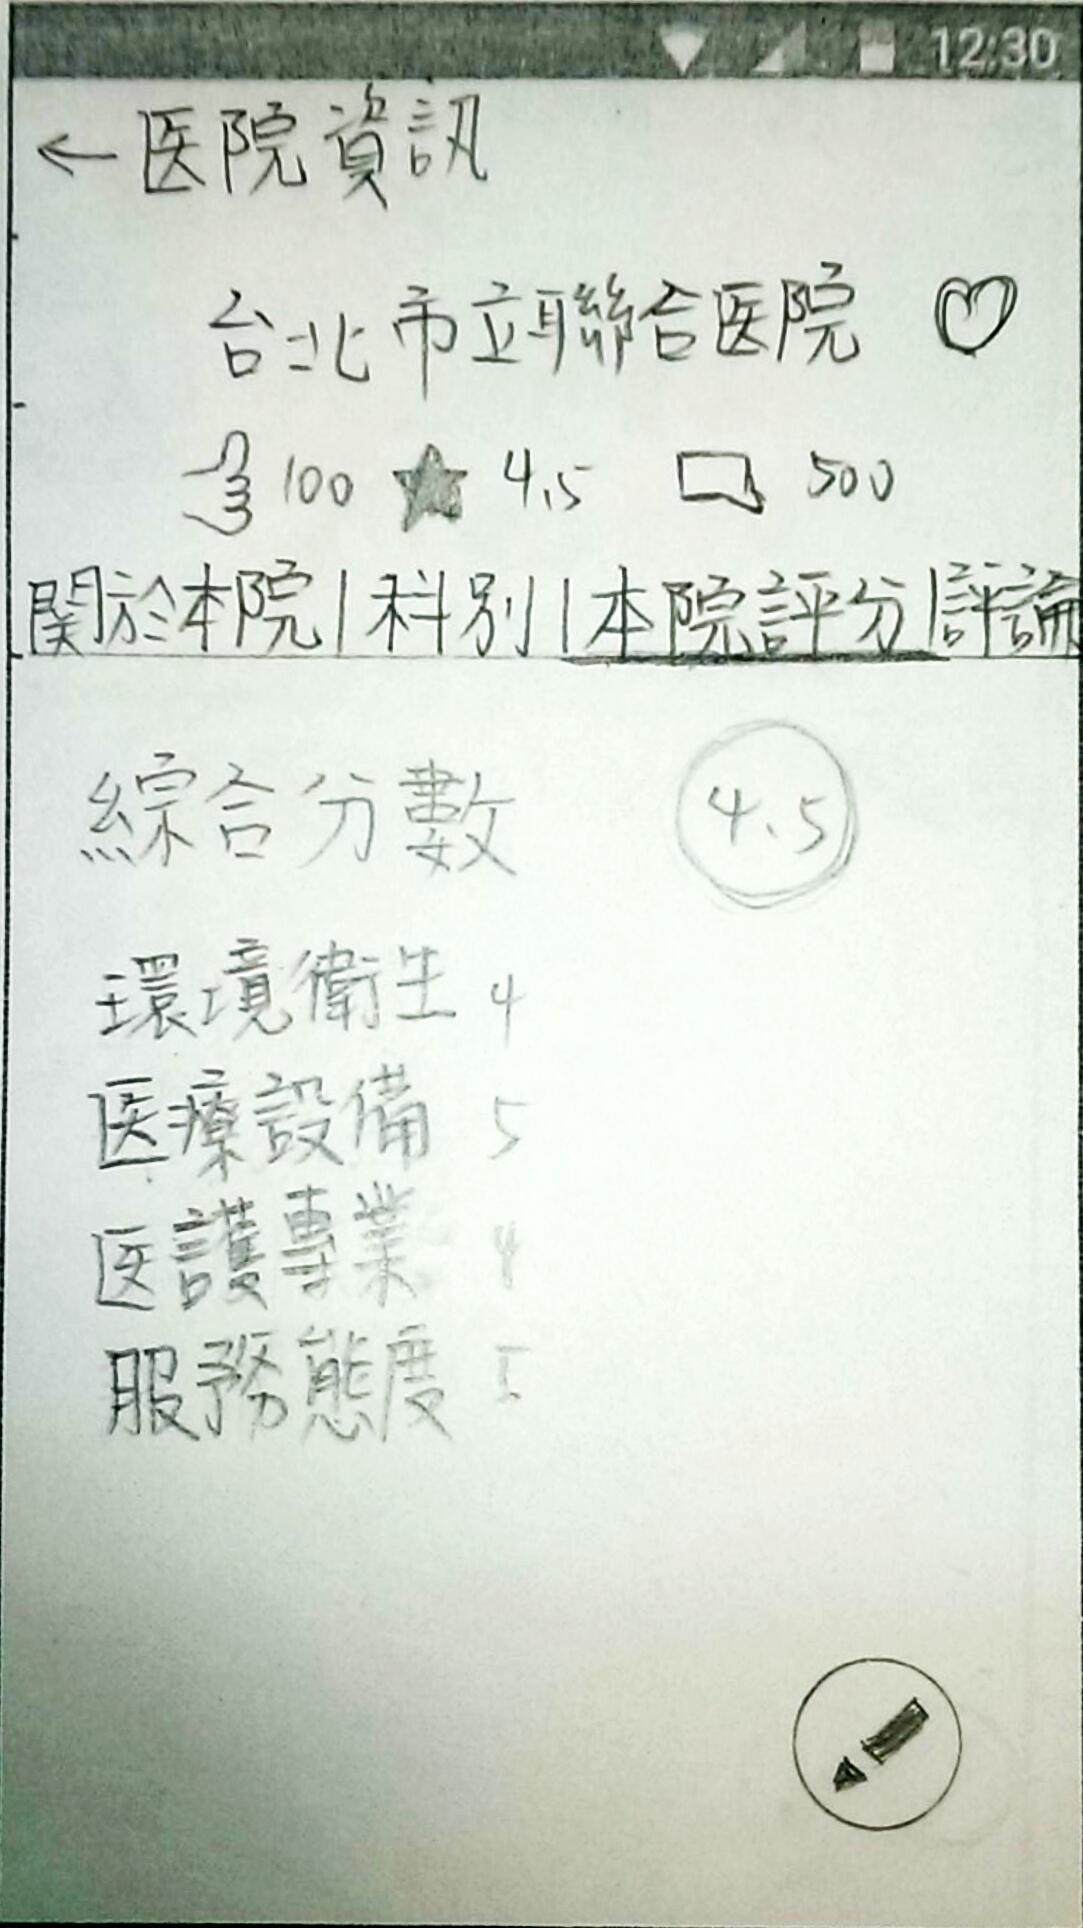 12:30
←医院資訊
台北市立聯合医院
100 4.5 500
関於本院|科別|本院評分|評論
綜合分數 4.5
環境衛生 4
医療設備 5
医護專業 4
服務態度 5